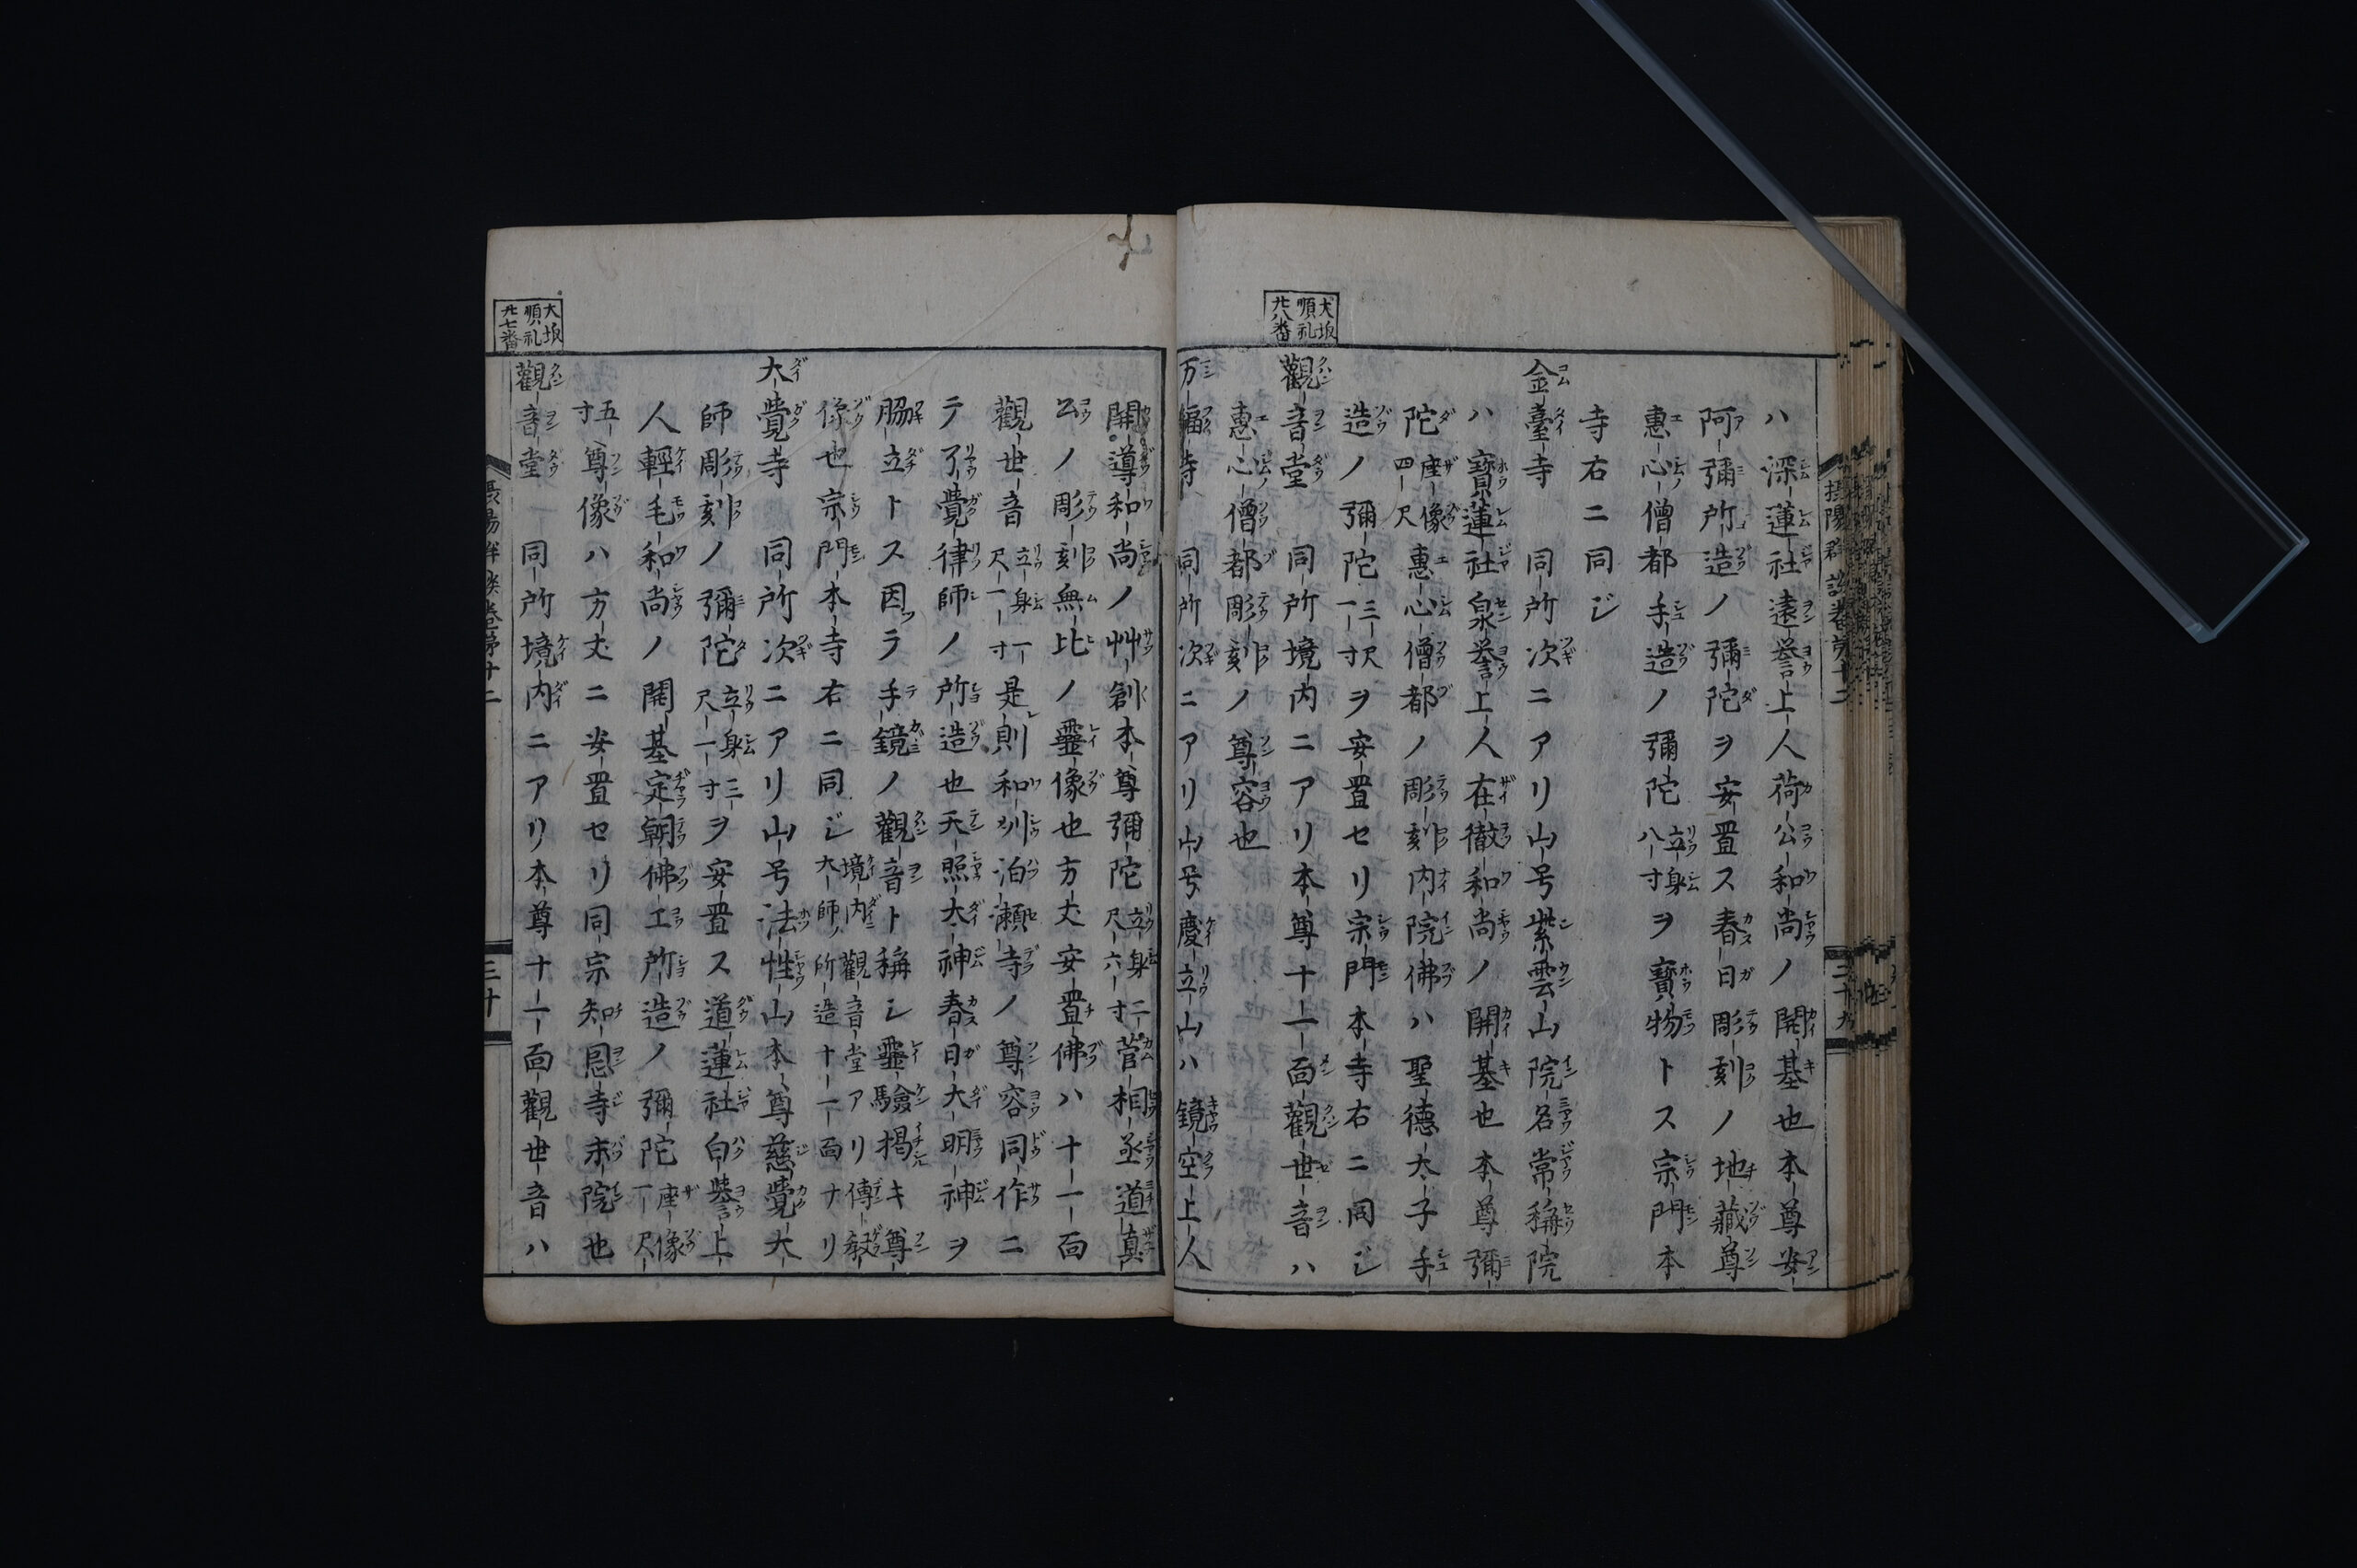 ハ深蓮社遠誉上人荷公和尚ノ開基也本尊安
阿彌所造ノ彌陀ヲ安置ス春日彫刻ノ地藏尊
惠心僧都手造ノ彌陀立身八寸ヲ寶物トス宗門本
寺右ニ同ジ
金臺寺 同所次ニアリ山号紫雲山院名常稱院
ハ寶蓮社泉誉上人在徹和尚ノ開基也本尊彌
陀座像四尺惠心僧都ノ彫刻内院佛ハ聖德太子手
造ノ彌陀三尺一寸ヲ安置セリ宗門本寺右ニ同ジ
大坂順礼廿八番
觀音堂 同所境内ニアリ本尊十一面觀世音ハ
惠心僧都彫刻ノ尊容也
万福寺 同所次ニアリ山号慶立山ハ鏡空上人
開導和尚ノ艸創本尊彌陀立身二尺六寸菅相丞道真
公ノ彫刻無比ノ靈像也方丈安置佛ハ十一面
觀世音立身一尺一寸是則和州泊瀬寺ノ尊容同作ニ
テ了覺律師ノ所造也天照大神春日大明神ヲ
脇立トス因テ手鏡ノ觀音ト稱シ靈驗掲キ尊
像也宗門本寺右ニ同ジ境内觀音堂アリ傳教大師ノ所造十一面ナリ
大覺寺 同所次ニアリ山号法性山本尊慈覺大
師彫刻ノ彌陀立身三尺一寸ヲ安置ス道蓮社白誉上
人輕毛和尚ノ開基定朝佛工所造ノ彌陀座像一尺
五寸尊像ハ方丈ニ安置セリ同宗知恩寺末院也
大坂順礼廿七番
觀音堂 同所境内ニアリ本尊十一面觀世音ハ
攝陽群談卷第十二
二十九
三十